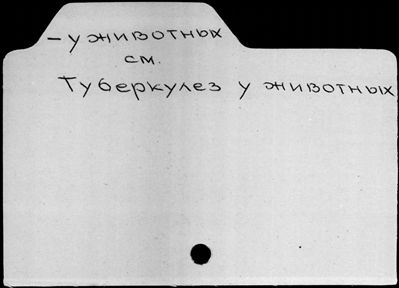 – у животных
см.
Туберкулез у животных